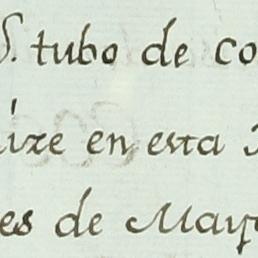 S. tubo de co
ire en esta
es de Mayo